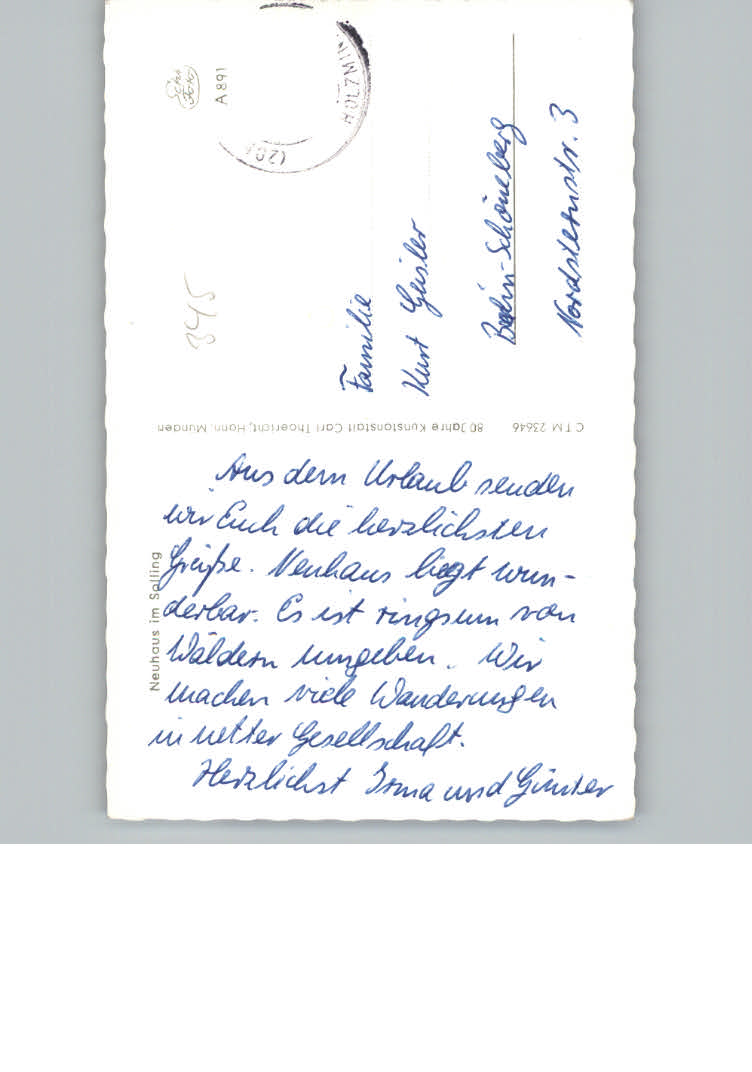 Echt
Foto
A 891
HOLZMIN
(20
345
Familie
Kurt Geisler
Berlin-Schöneberg
Nordsternstr. 3
C T M 23646 80 Jahre Kunstanstalt Carl Thoericht, Hann. Münden
Neuhaus im Solling
Aus dem Urlaub senden
wir Euch die herzlichsten
Grüße. Neuhaus liegt wun-
derbar. Es ist ringsum von
Wäldern umgeben. Wir
machen viele Wanderungen
in netter Gesellschaft.
Herzlichst Irma und Günter